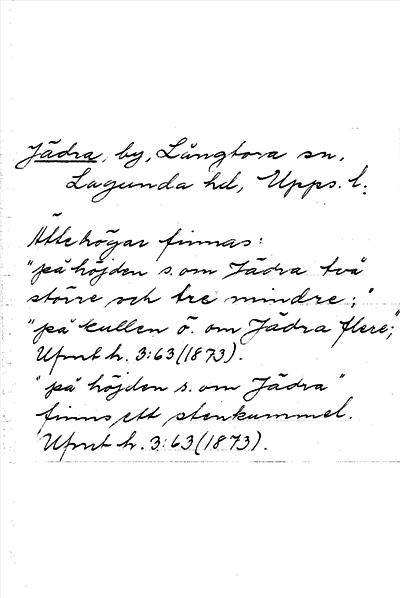 Jädra, by, Långtora sn,
Lagunda hd, Upps. l.
Ättehögar finnas:
"på höjden s. om Jädra två
större och tre mindre;"
"på kullen ö. om Jädra flere;"
Ufmt h. 3:63 (1873).
"på höjden s. om Jädra"
finns ett stenkummel.
Ufmt h. 3:63 (1873).